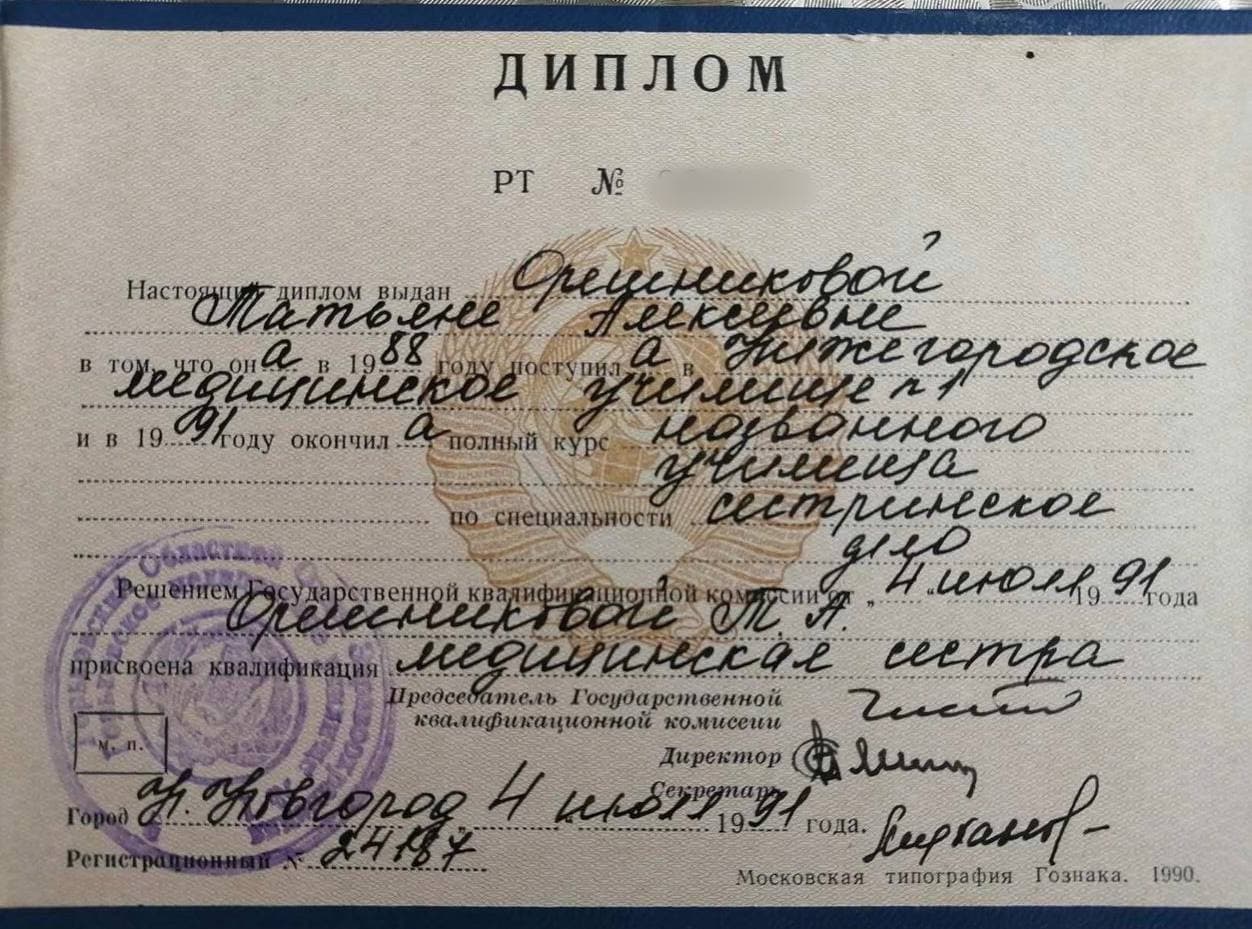 ДИПЛОМ
РТ №
Настоящий диплом выдан Орешниковой
Татьяне Алексеевне
в том, что она в 1988 году поступила в Нижегородское
медицинское училище №1
и в 1991 году окончила полный курс названного
училища
по специальности сестринское
дело
Решением Государственной квалификационной комиссии от „4“ июля 1991 года
Орешниковой Т. А.
присвоена квалификация медицинская сестра
Председатель Государственной
квалификационной комиссии
Директор
Секретарь
м. п.
Город Н. Новгород 4 июля 1991 года.
Регистрационный № 24187
Московская типография Гознака. 1990.